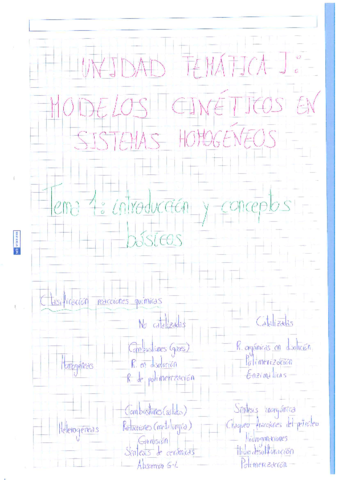 UNIDAD TEMÁTICA I:
MODELOS CINÉTICOS EN
SISTEMAS HOMOGÉNEOS
Tema 1: introducción y conceptos
básicos
Clasificación reacciones químicas
No catalizadas Catalizadas
Combustiones (gases) R orgánicas en disolución
Homogéneas R. en disolución Polimerización
R. de polimerización Enzimáticas
Combustiones (sólidos) Síntesis inorgánica
Heterogéneas Reducciones (metalurgia) Craqueo fracciones del petróleo
Corrosión
Síntesis de cerámicas
Absorción G-L Polimerización